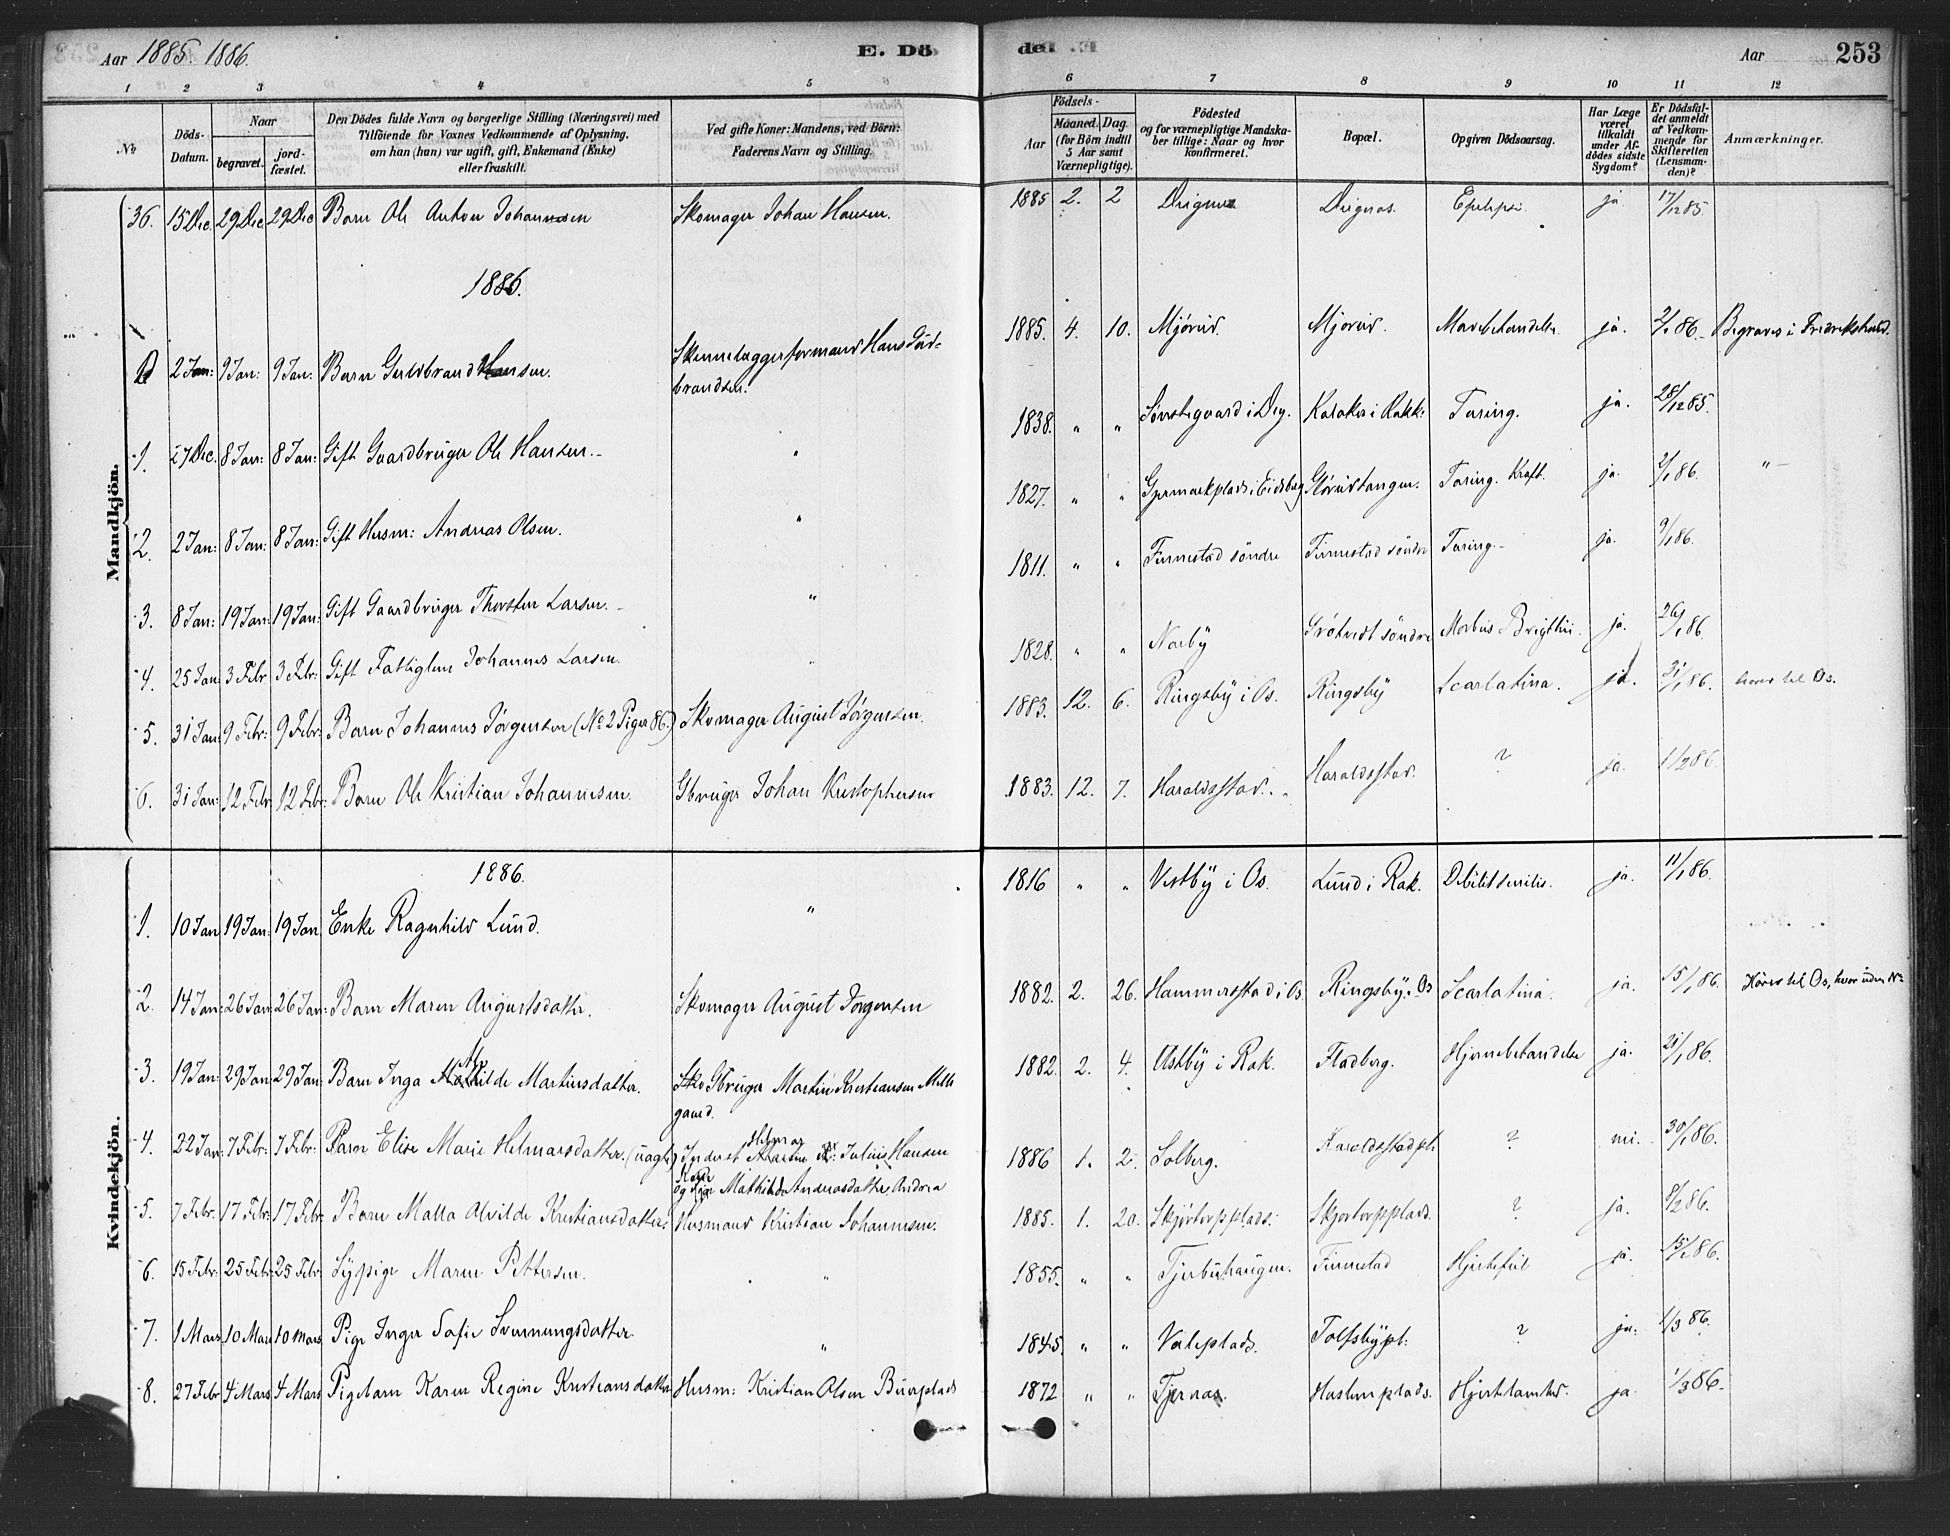 Aar 1885. 1886.
E. Dö
de. E.
Aar
253
1 2 3 4 5 6 7 8 9 10 11 12
No.
Döds-Datum.
Naar
begravet.
jord-fæstet.
Den Dödes fulde Navn og borgerlige Stilling (Næringsvei) med
Tilföiende for Voxnes Vedkommende af Oplysning,
om han (hun) var ugift, gift, Enkemand (Enke)
eller fraskilt.
Ved gifte Koner: Mandens, ved Börn:
Faderens Navn og Stilling.
Födsels-
Aar
Maaned. Dag.
(for Börn indtil
5 Aar samt
Værnepligtige).
Födested
og for værnepligtige Mandska-
ber tillige: Naar og hvor
konfirmeret.
Bopæl.
Opgiven Dödsaarsag.
Har Læge
været
tilkaldt
under Af-
dödes sidste
Sygdom?
Er Dödsfal-
det anmeldt
af Vedkom-
mende for
Skifteretten
(Lensman-
den)?
Anmærkninger.
Mandkjön.
36. 15 Dec. 29 Dec. 29 Dec Barn Ole Anton Johannsen Skomager Johan Hansen. 1885 2. 2 Epilepsi. ja. 17/12 85.
1886.
2 Jan: 9 Jan: 9 Jan: Barn Guldbrand Hansen. Skinnelæggerformand Hans Guld-
brandsen. 1885. 4. 10. Mjörud. Mjörud. Mavebetændelse ja. 2/1 86. Begraves i Fredrikshald.
1. 27 Dec. 8 Jan: 8 Jan: Gift Gaardbruger Ole Hansen. " 1838. " " Tæring. ja. 28/12 85.
2. 2 Jan: 8 Jan: 8 Jan: Gift Husm: Andreas Olsen. " 1827. " " Tæring. Kræft. ja. 2/1 86. "
3. 8 Jan: 19 Jan: 19 Jan: Gift Gaardbruger Thorsten Larsen. " 1811. " " Finnestad söndre Finnestad söndre Tæring. ja. 9/1 86.
4. 25 Jan 3 Febr 3 Febr: Gift Fattiglem Johannes Larsen. " 1828. " " Nærby Grötvedt söndre Morbus Brigthii. ja. 26/1 86.
5. 31 Jan: 9 Febr: 9 Febr: Barn Johannes Jörgensen (No 2 Piger 86.) Skomager August Jörgensen. 1883. 12. 6. Ringsby i Os. Ringsby Scarlatina. ja. 31/1 86. hörer til Os.
6. 31 Jan: 12 Febr 12 Febr: Barn Ole Kristian Johannesen. Gbruger Johan Kristophersen 1883. 12. 7. Haraldsstad. Haraldsstad. ? ja. 1/2 86.
Kvindekjön.
1886.
1. 10 Jan 19 Jan: 19 Jan Enke Ragnhild Lund. " 1816 " " Vestby i Os. Lund i Rak. Debilit senilis. ja. 11/1 86.
2. 14 Jan: 26 Jan 26 Jan: Barn Maren Augustsdatter. Skomager August Jörgensen 1882. 2. 26. Hammerstad i Os. Ringsby i Os Scarlatina. ja. 15/1 86. Hörer til Os, hvor uden No
3. 19 Jan: 29 Jan 29 Jan: Barn Inga Mathilde Martinsdatter. Gbruger Martin Kristiansen Melle
gaard. 1882. 2. 4. Østby i Rak. Fladberg. Hjernebetændelse ja. 21/1 86.
4. 22 Jan 7 Febr: 7 Febr: Barn Elise Marie Helmarsdatter. (uægte) Inderst Helmar Julius Hansen
og Pige Mathilde Andreasdatter Andrea 1886 1. 2. Solberg. Haraldsstadpl. ? nei. 30/1 86.
5. 7 Febr. 17 Febr: 17 Febr: Barn Malla Alvilde Kristiansdatter. Husmand Kristian Johannesen. 1885. 1. 20. Skjörtorpplads. Skjörtorpplads. ? ja. 8/2 86.
6. 15 Febr: 25 Febr: 25 Febr. Sypige Maren Pettersen. " 1855. " " Tjerbuhaugen. Finnestad Hjertefeil ja. 15/2 86.
7. 1 Mars 10 Mars 10 Mars Pige Inger Sofie Svenningsdatter. " 1845. " " Valeplads. Tolfsbypl: ? ja. 1/3 86.
8. 27 Febr 4 Mars 4 Mars Pigebarn Karen Regine Kristiansdatter Husm: Kristian Olsen Buerplads 1872 " " Tjernæs. Haslemplads. ja. 1/3 86.